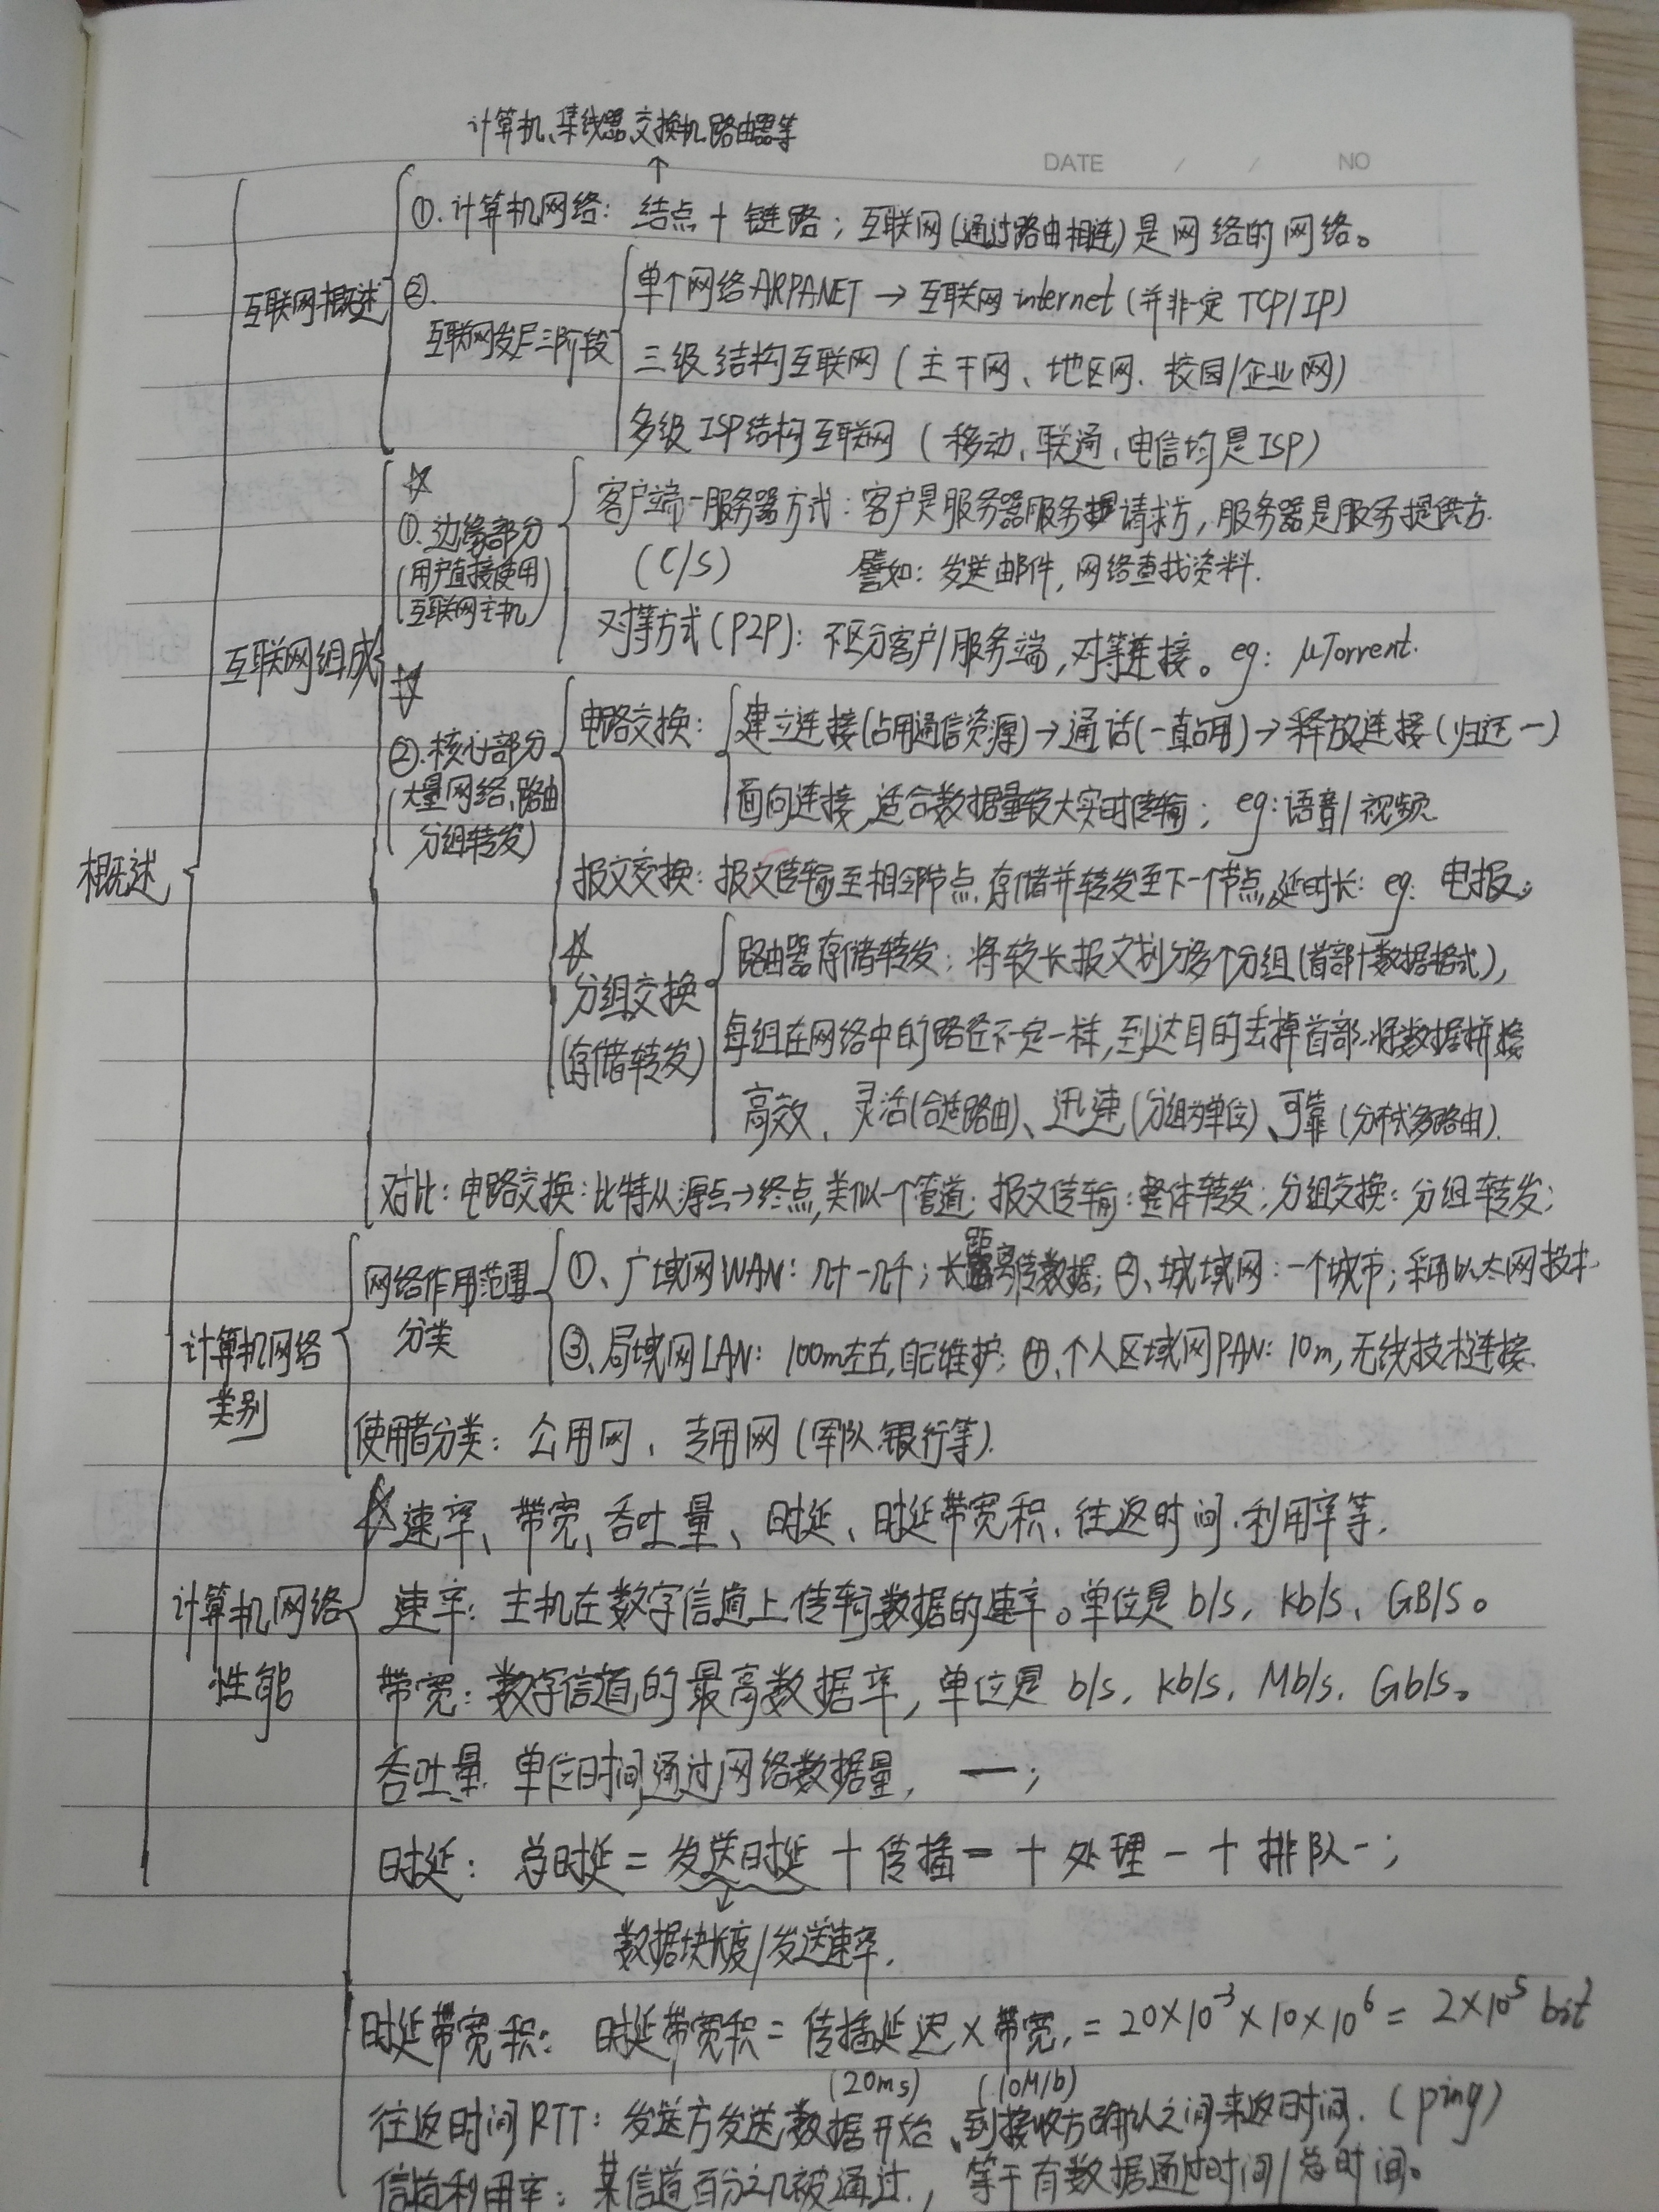 计算机、集线器、交换机、路由器等
↑
DATE / / NO
①.计算机网络：结点＋链路；互联网(通过路由相连)是网络的网络。
互联网概述
②.
互联网发展三阶段
单个网络ARPANET → 互联网internet (并非一定TCP/IP)
三级结构互联网 (主干网、地区网、校园/企业网)
多级ISP结构互联网 (移动、联通、电信均是ISP)
☆
①.边缘部分
(用户直接使用
互联网主机)
客户端-服务器方式：客户是服务器服务请求方，服务器是服务提供方.
(C/S) 譬如：发送邮件，网络查找资料.
对等方式(P2P)：不区分客户/服务端，对等连接。eg: μTorrent.
互联网组成
☆
②.核心部分
(大量网络、路由
分组转发)
电路交换：
建立连接(占用通信资源)→通话(一直占用)→释放连接(归还一)
面向连接，适合数据量较大实时传输；eg:语音/视频.
概述
报文交换：报文传输至相邻节点,存储并转发至下一个节点,延时长：eg: 电报；
☆
分组交换
(存储转发)
路由器存储转发；将较长报文划分多个分组(首部+数据格式)，
每组在网络中的路径不一定一样,到达目的去掉首部.将数据拼接
高效、灵活(合适路由)、迅速(分组为单位)、可靠(分布式多路由).
对比：电路交换：比特从源点→终点,类似一个管道；报文传输：整体转发；分组交换：分组转发；
计算机网络
类别
网络作用范围
分类
①、广域网WAN：几十-几千；长距离传数据；②、城域网：一个城市；采用以太网技术.
③、局域网LAN：100m左右,自己维护；④、个人区域网PAN：10m,无线技术连接.
使用者分类：公用网、专用网(军队、银行等).
☆速率、带宽、吞吐量、时延、时延带宽积、往返时间、利用率等.
计算机网络
性能
速率：主机在数字信道上传输数据的速率。单位是b/s, kb/s、GB/S。
带宽：数字信道的最高数据率，单位是b/s, kb/s, Mb/s, Gb/s。
吞吐量. 单位时间通过网络数据量， —；
时延：总时延 = 发送时延 + 传播－ + 处理－ + 排队－；
↓
数据块长度/发送速率.
时延带宽积：时延带宽积 = 传播延迟 × 带宽, = 20×10⁻³×10×10⁶ = 2×10⁵ bit
(20ms) (10M/b)
往返时间RTT：发送方发送数据开始、到接收方确认之间来返时间. (ping)
信道利用率：某信道百分之几被通过.，等于有数据通过时间/总时间。